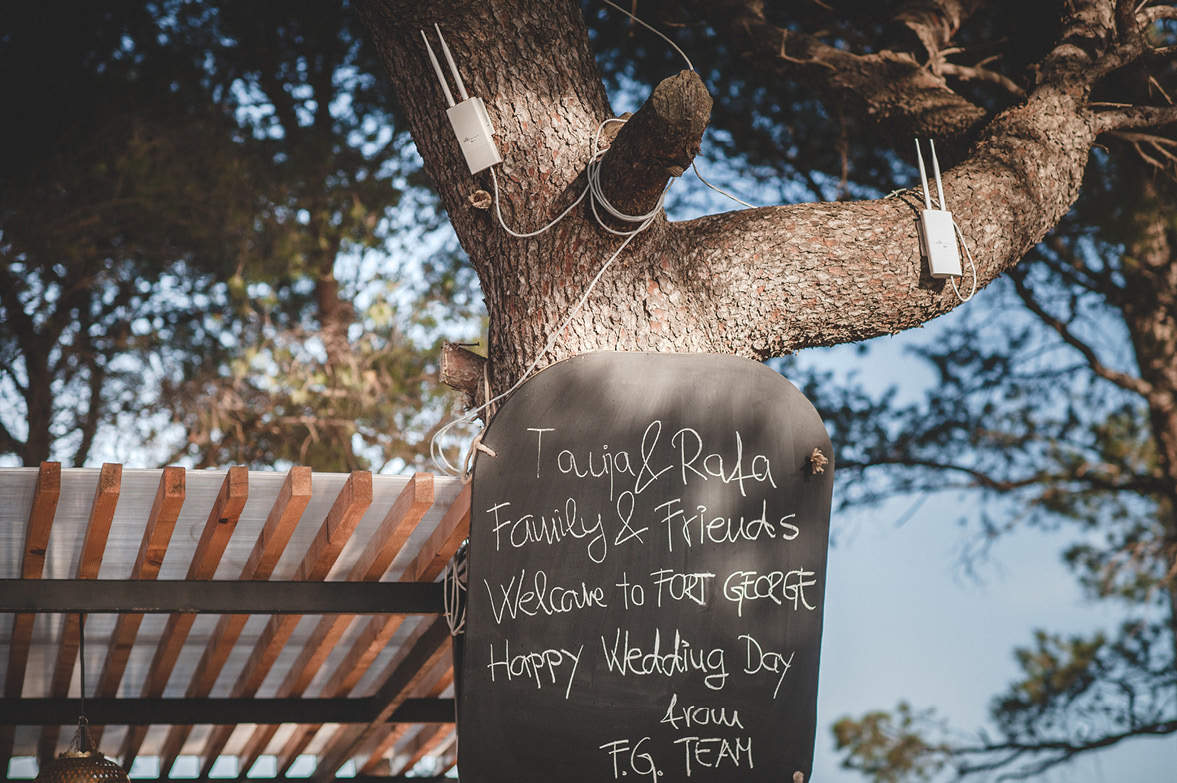 Tanja & Rafa
Family & Friends
Welcome to FORT GEORGE
Happy Wedding Day
from
F.G. TEAM